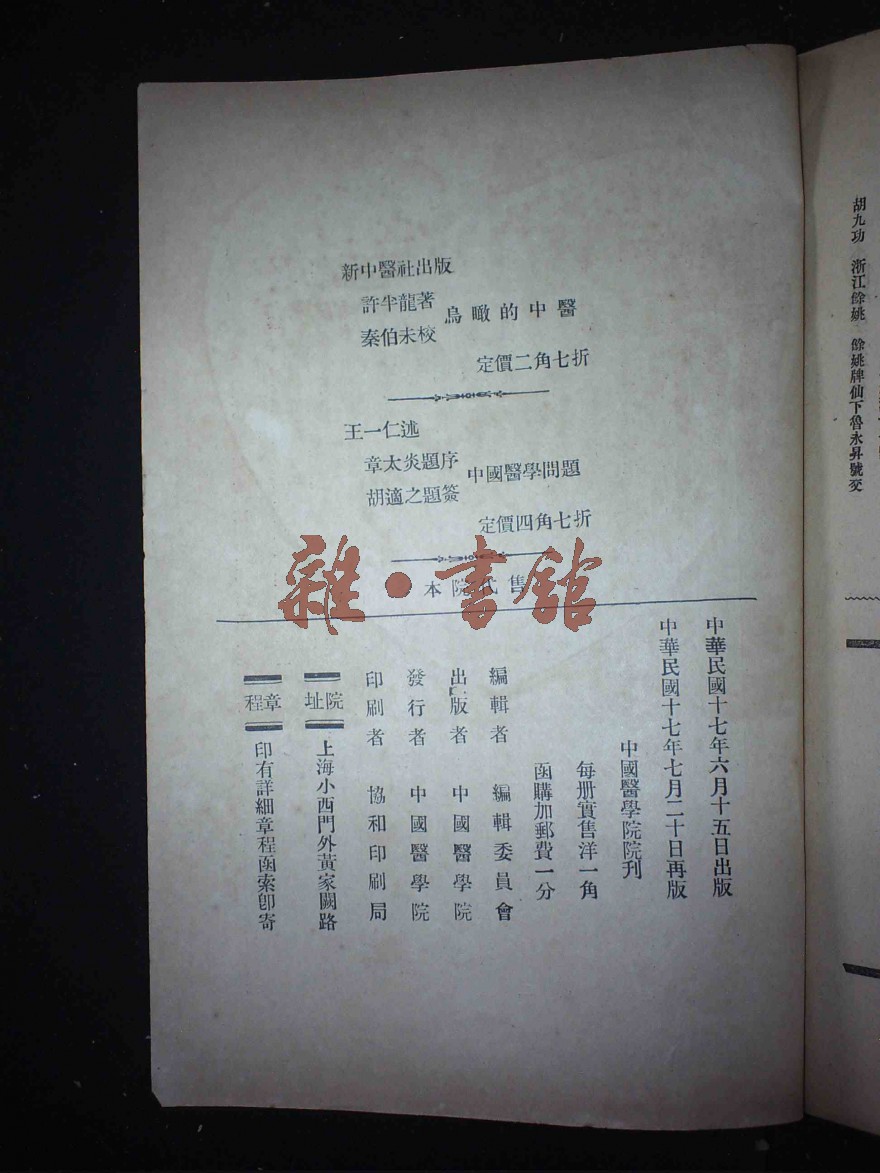 新中醫社出版
許半龍著
秦伯未校
鳥瞰的中醫
定價二角七折
王一仁述
章太炎題序
胡適之題簽
中國醫學問題
定價四角七折
本院代售
雜·書館
中華民國十七年六月十五日出版
中華民國十七年七月二十日再版
中國醫學院院刊
每册實售洋一角
函購加郵費一分
編輯者 編輯委員會
出版者 中國醫學院
發行者 中國醫學院
印刷者 協和印刷局
院址 上海小西門外黃家闕路
章程 印有詳細章程函索卽寄
胡九功 浙江餘姚 餘姚牌仙下魯永昇號交